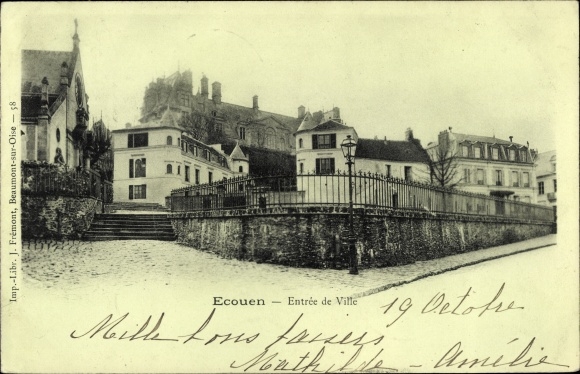 Imp.-Libr. J. Frémont, Beaumont-sur-Oise — 58
Ecouen — Entrée de Ville
19 Octobre
Mille bons baisers
Mathilde - Amélie